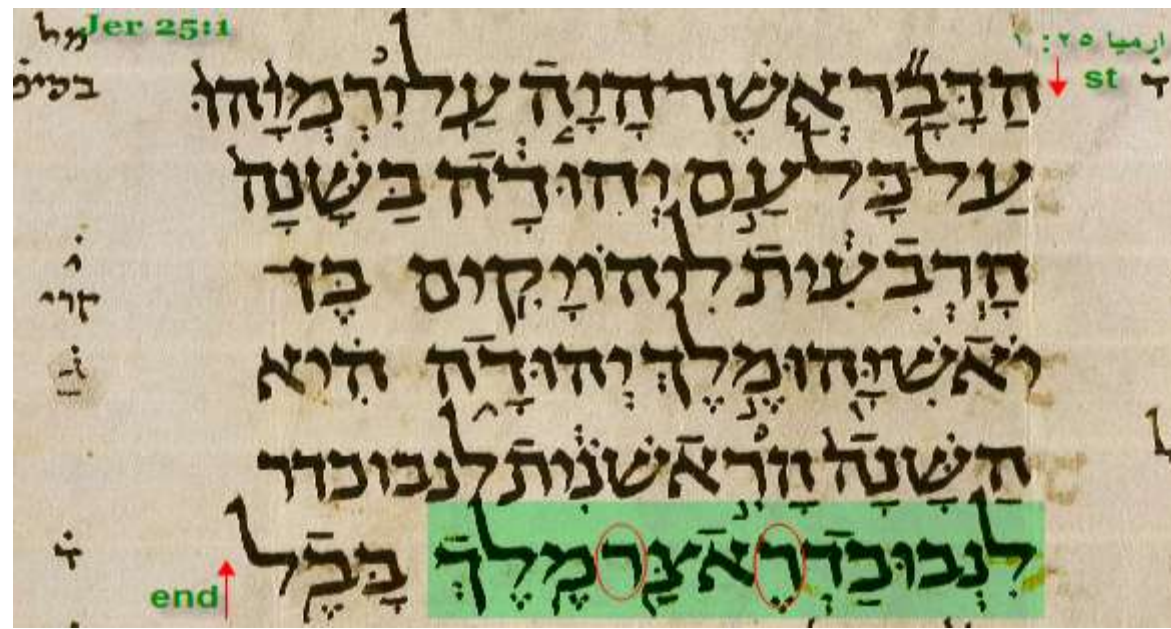 Jer 25:1
ارميا ٢٥: ١
הַדָּבָר אֲשֶׁר הָיָה עַל יִרְמְיָהוּ
st
עַל כָּל עַם יְהוּדָה בַּשָּׁנָה
הָרְבִעִית לִיהוֹיָקִים בֶּן
קרי
יֹאשִׁיָּהוּ מֶלֶךְ יְהוּדָה הִיא
הַשָּׁנָה הָרִאשֹׁנִית לנבוכדר
לִנְבוּכַדְרֶאצַּר מֶלֶךְ בָּבֶל
end